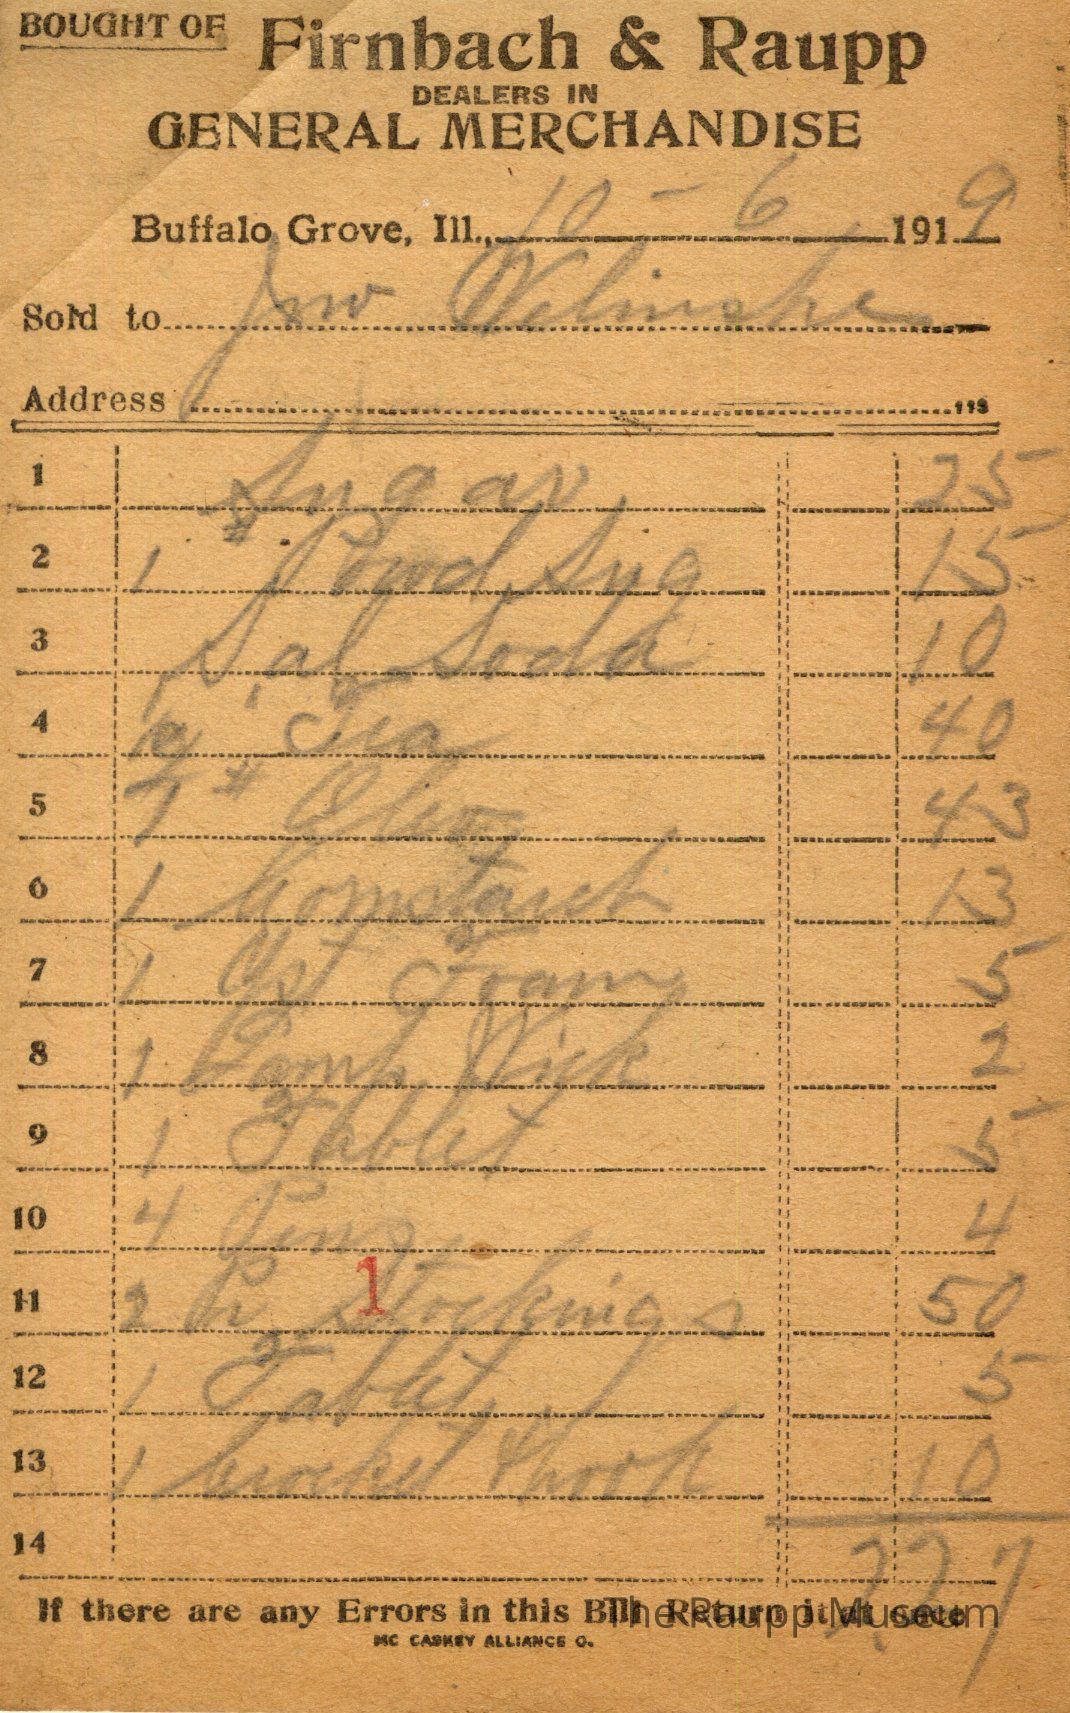 BOUGHT OF Firnbach & Raupp
DEALERS IN
GENERAL MERCHANDISE
Buffalo Grove, Ill., 10 - 6 1919
Sold to Jno Welinske
Address
1 Sugar 25
2 1 # Powd Sug 15
3 Sal Soda 10
4 Tea 40
5 # 43
6 1 Cornstarch 13
7 1 Yst Foam 5
8 1 Lamp Wick 2
9 1 Tablet 5
10 4 Pens 4
11 2 Pr Stockings 50
1
12 1 Tablet 5
13 1 Crochet Hook 10
14 2 2 7
If there are any Errors in this Bill Return it at once
The Raupp Museum
MC CASKEY ALLIANCE O.